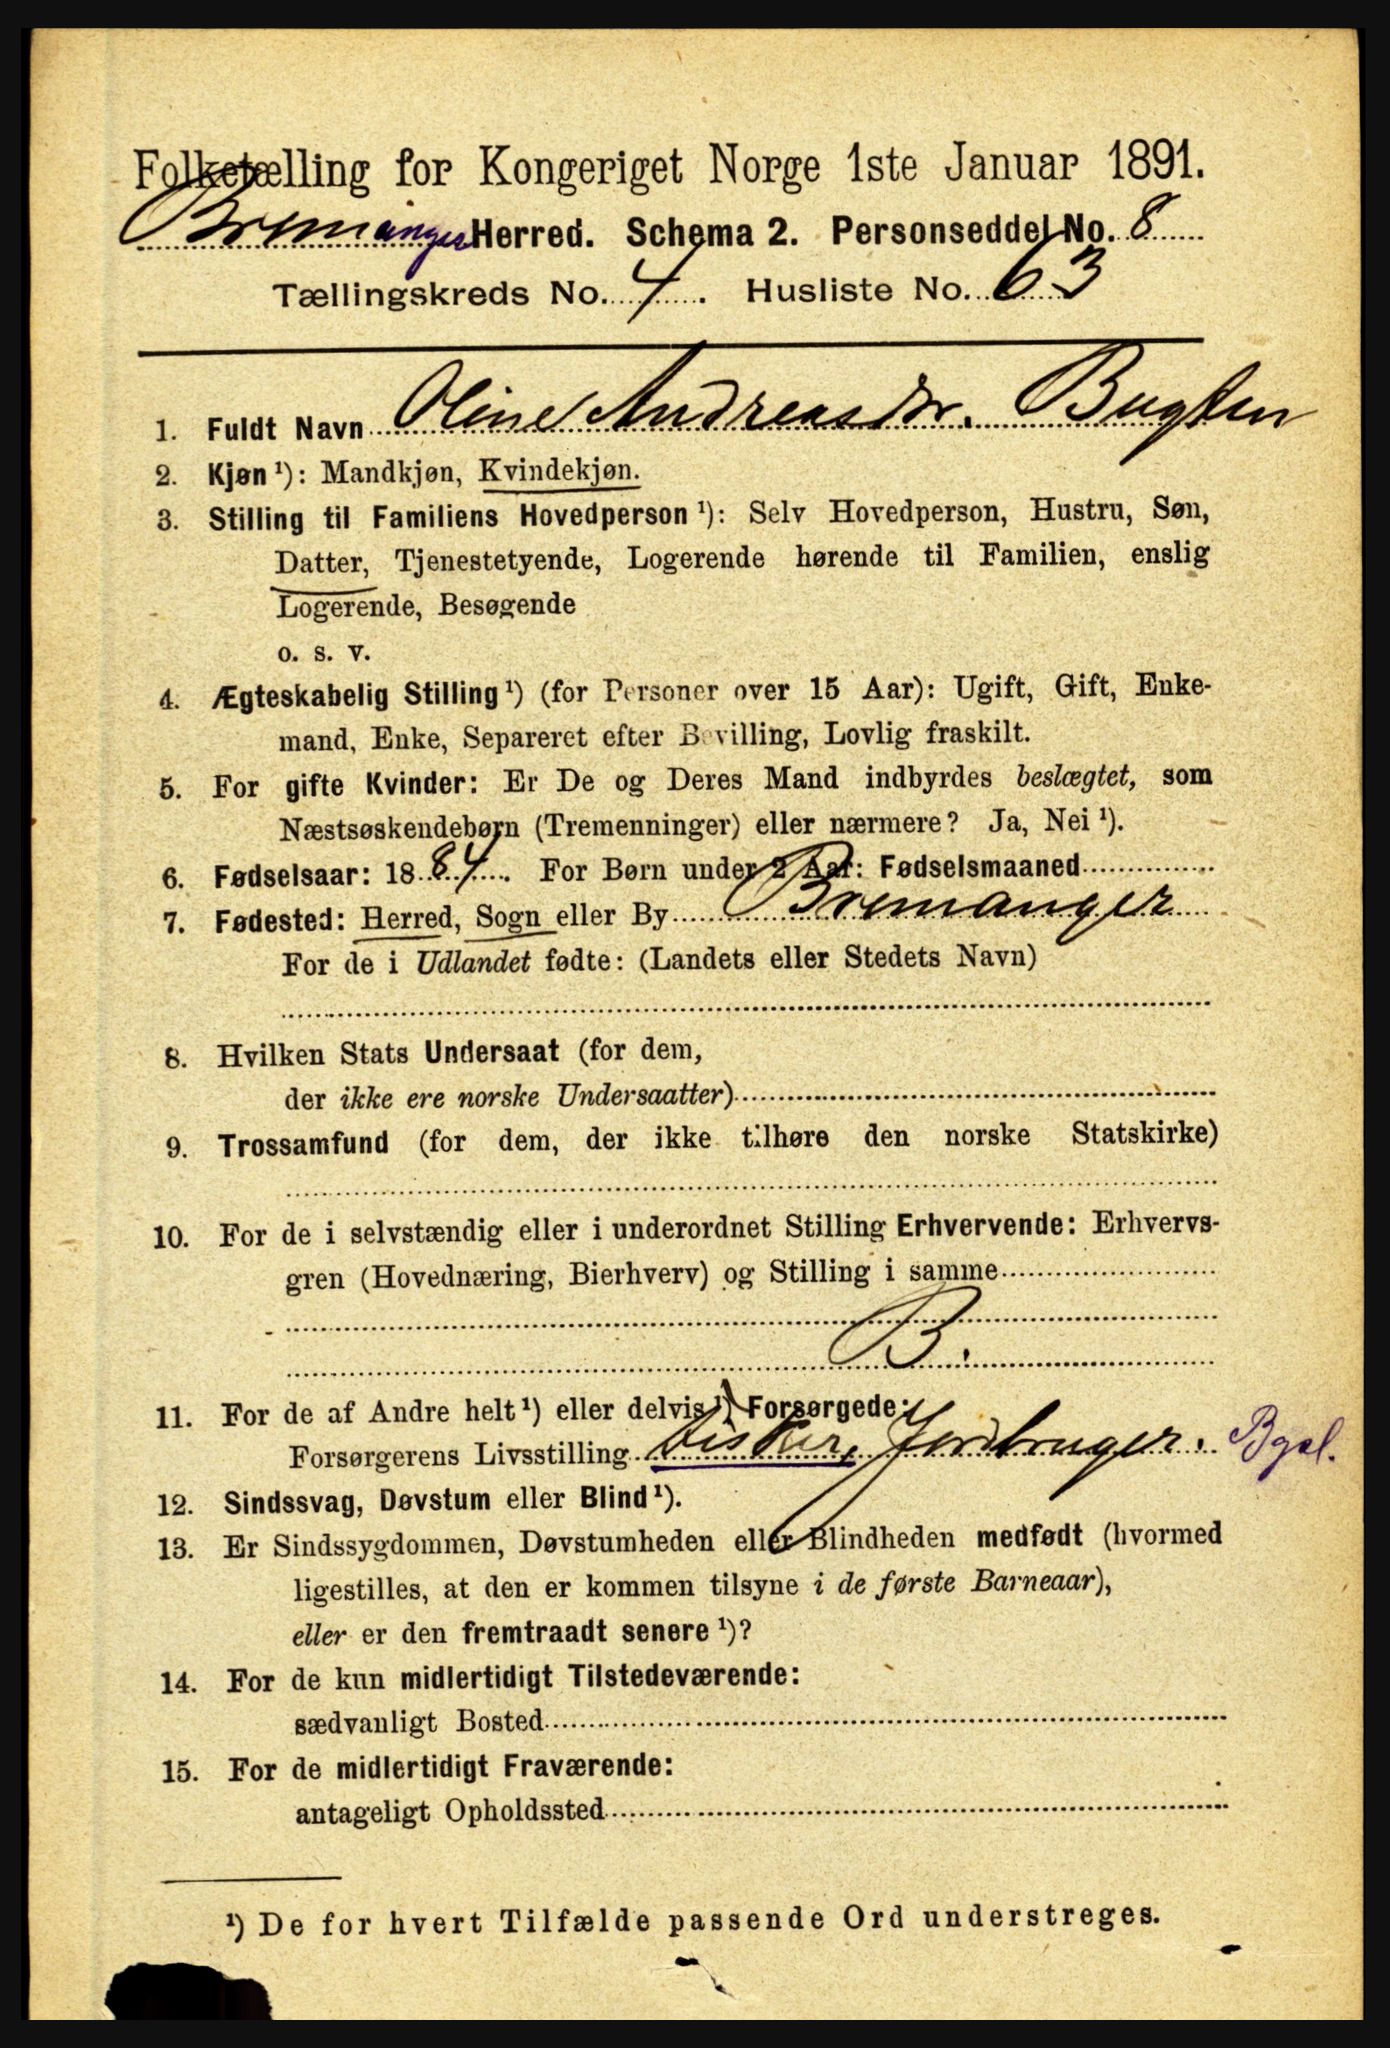 Folketælling for Kongeriget Norge 1ste Januar 1891.
Bremanger Herred. Schema 2. Personseddel No. 8
Tællingskreds No. 4. Husliste No. 63
1. Fuldt Navn Oline Andreasdtr. Bugten
2. Kjøn¹): Mandkjøn, Kvindekjøn.
3. Stilling til Familiens Hovedperson¹): Selv Hovedperson, Hustru, Søn,
Datter, Tjenestetyende, Logerende hørende til Familien, enslig
Logerende, Besøgende
o. s. v.
4. Ægteskabelig Stilling¹) (for Personer over 15 Aar): Ugift, Gift, Enke-
mand, Enke, Separeret efter Bevilling, Lovlig fraskilt.
5. For gifte Kvinder: Er De og Deres Mand indbyrdes beslægtet, som
Næstsøskendebørn (Tremenninger) eller nærmere? Ja, Nei¹).
6. Fødselsaar: 1884. For Børn under 2 Aar: Fødselsmaaned
7. Fødested: Herred, Sogn eller By Bremanger
For de i Udlandet fødte: (Landets eller Stedets Navn)
8. Hvilken Stats Undersaat (for dem,
der ikke ere norske Undersaatter)
9. Trossamfund (for dem, der ikke tilhøre den norske Statskirke)
10. For de i selvstændig eller i underordnet Stilling Erhvervende: Erhvervs-
gren (Hovednæring, Bierhverv) og Stilling i samme
B.
11. For de af Andre helt¹) eller delvis¹) Forsørgede:
Forsørgerens Livsstilling Fisker, Jordbruger. Bgsl.
12. Sindssvag, Døvstum eller Blind¹).
13. Er Sindssygdommen, Døvstumheden eller Blindheden medfødt (hvormed
ligestilles, at den er kommen tilsyne i de første Barneaar),
eller er den fremtraadt senere¹)?
14. For de kun midlertidigt Tilstedeværende:
sædvanligt Bosted
15. For de midlertidigt Fraværende:
antageligt Opholdssted
¹) De for hvert Tilfælde passende Ord understreges.